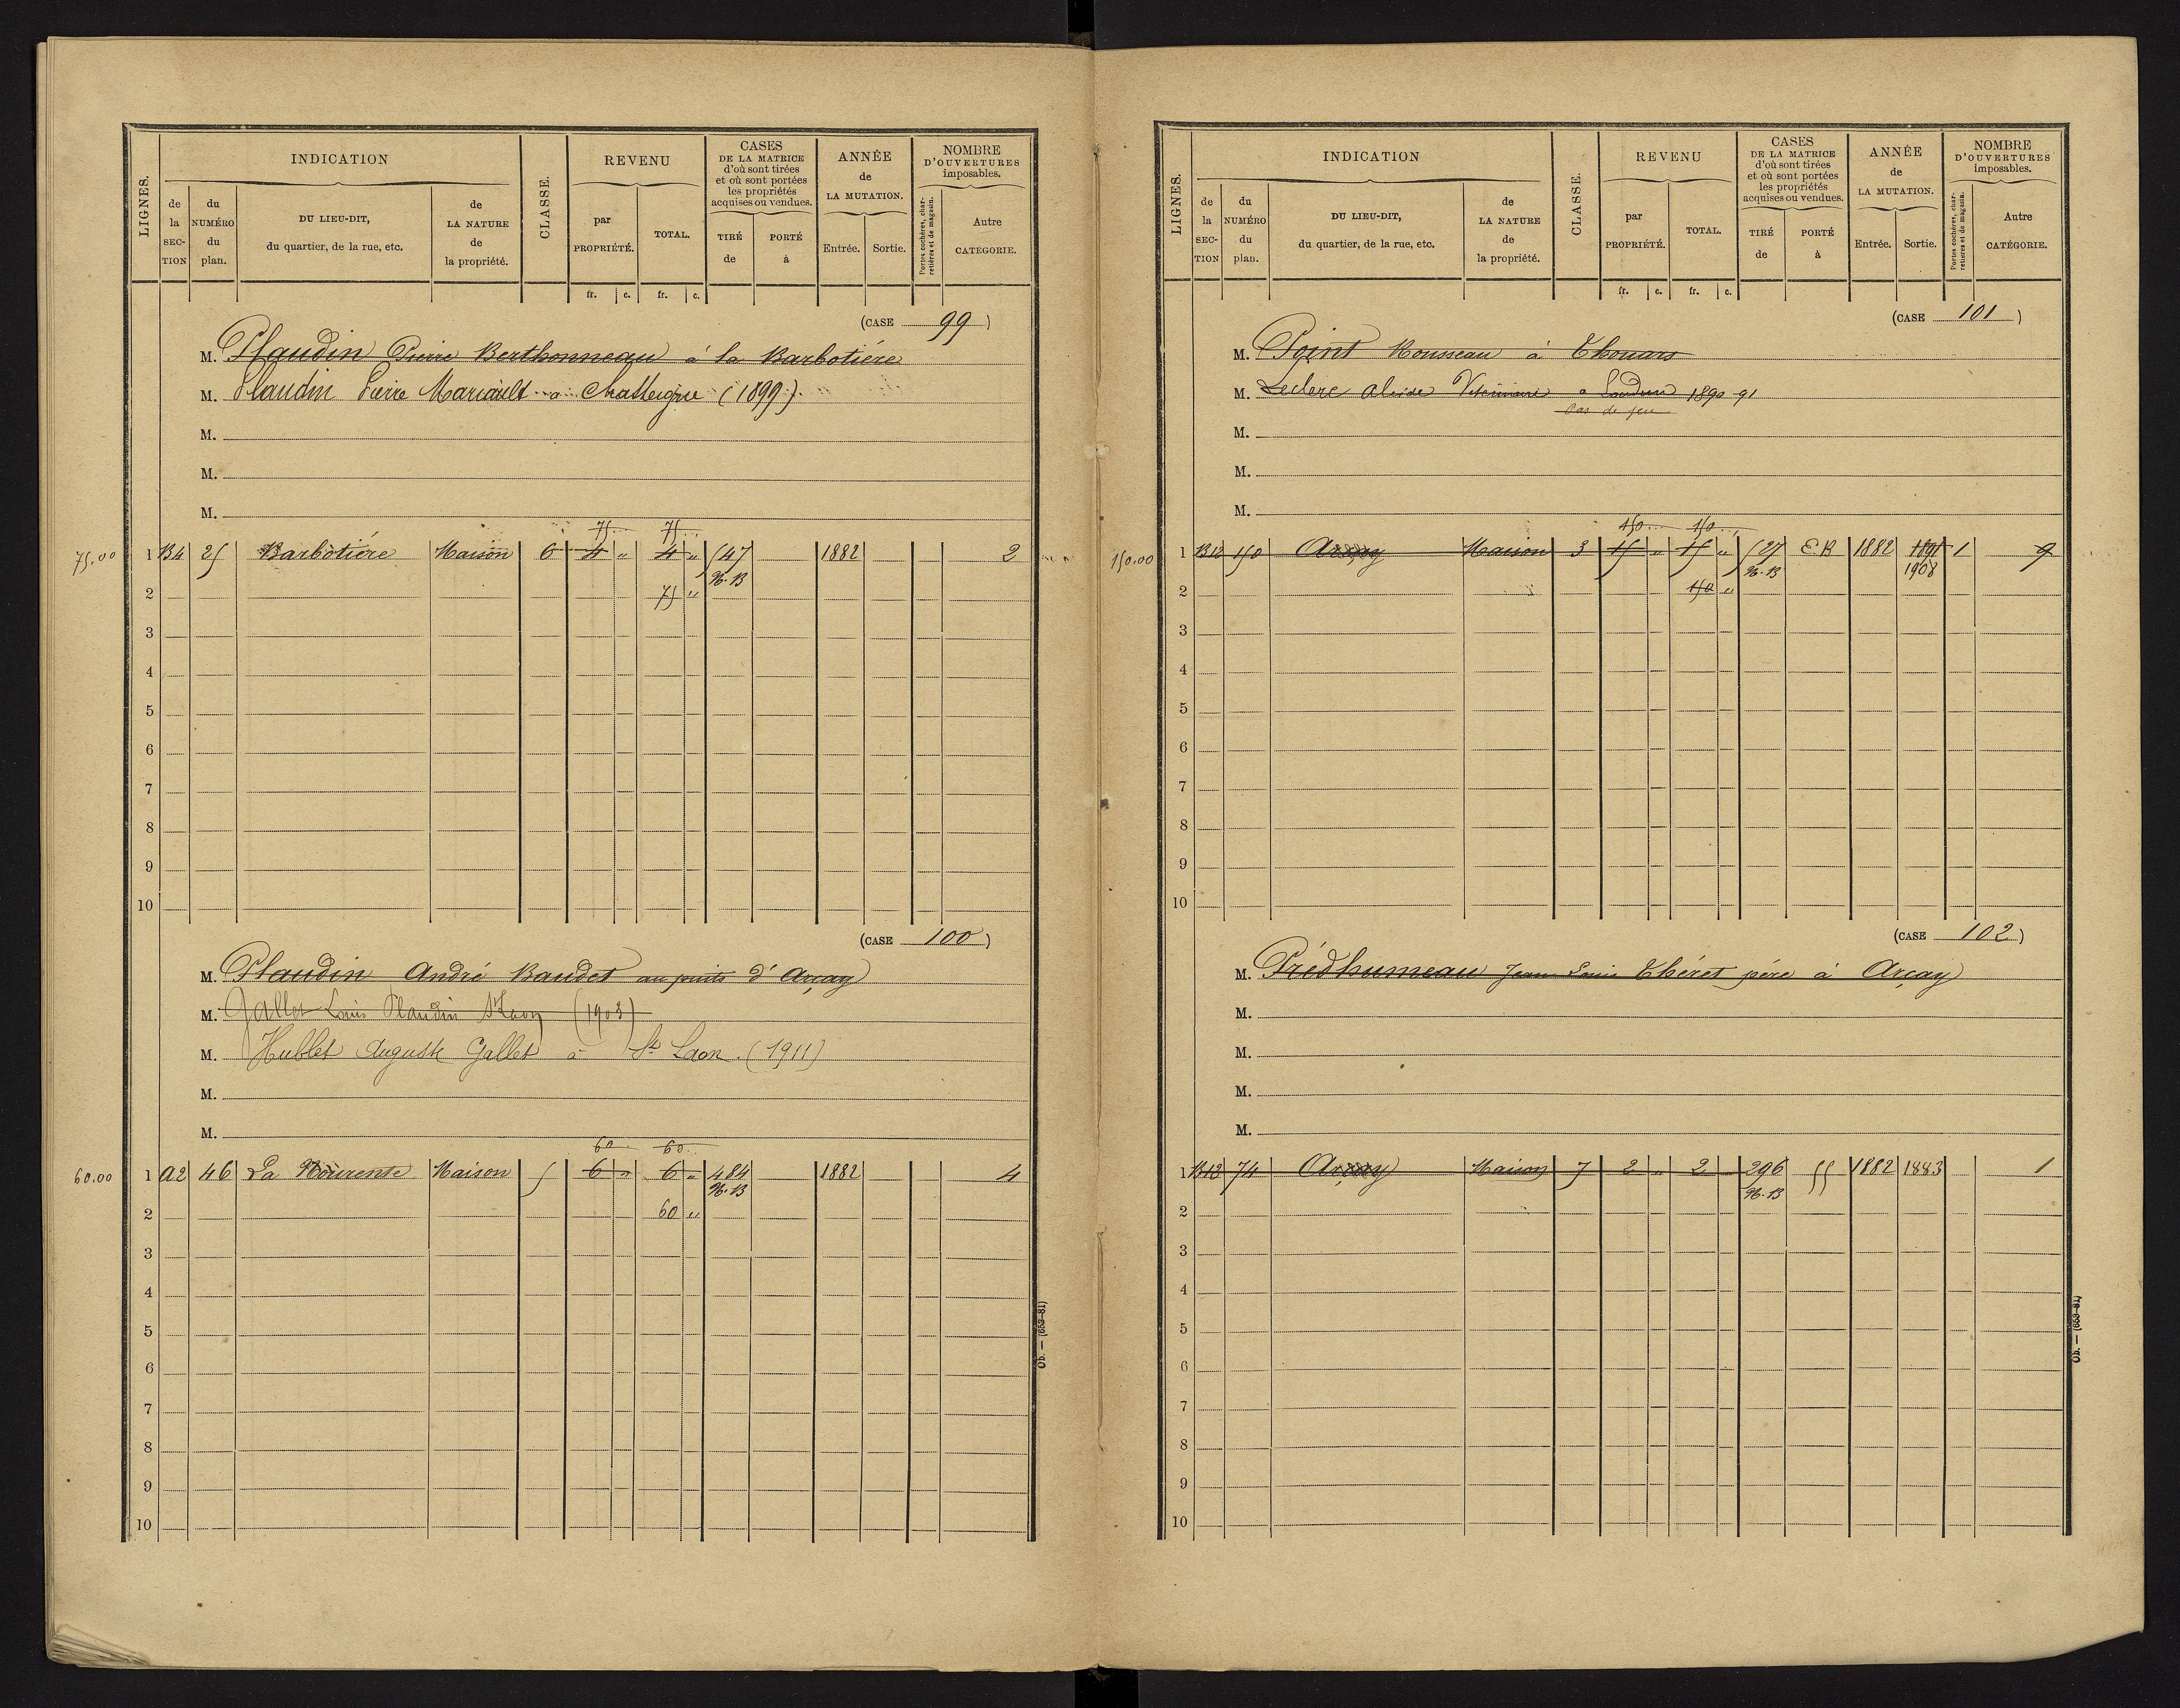 INDICATION REVENU CASES DE LA MATRICE d'où sont tirées et où sont portées les propriétés acquises ou vendues. ANNÉE de LA MUTATION. NOMBRE D'OUVERTURES imposables.
LIGNES. de la SECTION du NUMÉRO du plan. DU LIEU-DIT, du quartier, de la rue, etc. de LA NATURE de la propriété. CLASSE. par PROPRIÉTÉ. TOTAL. TIRÉ de PORTÉ à Entrée. Sortie. Portes cochères, charretières et de magasin. Autre CATÉGORIE.
fr. c. fr. c.
(CASE 99)
M. Plaudin Pierre Berthonneau à la Barbotière
M. Plaudin Pierre Mariault à Chasseigne (1899)
M.
M.
M.
75 75
75.00 1 B4 25 Barbotière Maison 6 4 " 4 " 547 1882 2
N.B
2 75 "
3
4
5
6
7
8
9
10
(CASE 100)
M. Plaudin André Baudet au puits d'Arçay
M. Gallet Louis Plaudin St Laon (1903)
M. Hublet Auguste Gallet à St Laon. (1911)
M.
M.
60 60
60.00 1 A2 46 La Maison 5 6 " 6 " 484 1882 4
N.B
2 60 "
3
4
5
6
7
8
9
10
Ob. — (653-81)
INDICATION REVENU CASES DE LA MATRICE d'où sont tirées et où sont portées les propriétés acquises ou vendues. ANNÉE de LA MUTATION. NOMBRE D'OUVERTURES imposables.
LIGNES. de la SECTION du NUMÉRO du plan. DU LIEU-DIT, du quartier, de la rue, etc. de LA NATURE de la propriété. CLASSE. par PROPRIÉTÉ. TOTAL. TIRÉ de PORTÉ à Entrée. Sortie. Portes cochères, charretières et de magasin. Autre CATÉGORIE.
fr. c. fr. c.
(CASE 101)
M. Point Rousseau à Thouars
M. Leclerc Alcide Vétérinaire à Loudun 1890 91
Pas de jeu
M.
M.
M.
150 150
150.00 1 B12 150 Arçay Maison 3 15 " 15 " 527 E.R 1882 1891 1 9
N.B 1908
2 150 "
3
4
5
6
7
8
9
10
(CASE 102)
M. Prédhumeau Jean Louis Théret père à Arçay
M.
M.
M.
M.
1 B12 74 Arçay Maison 7 2 " 2 296 55 1882 1883 1
N.B
2
3
4
5
6
7
8
9
10
Ob. — (653-81)